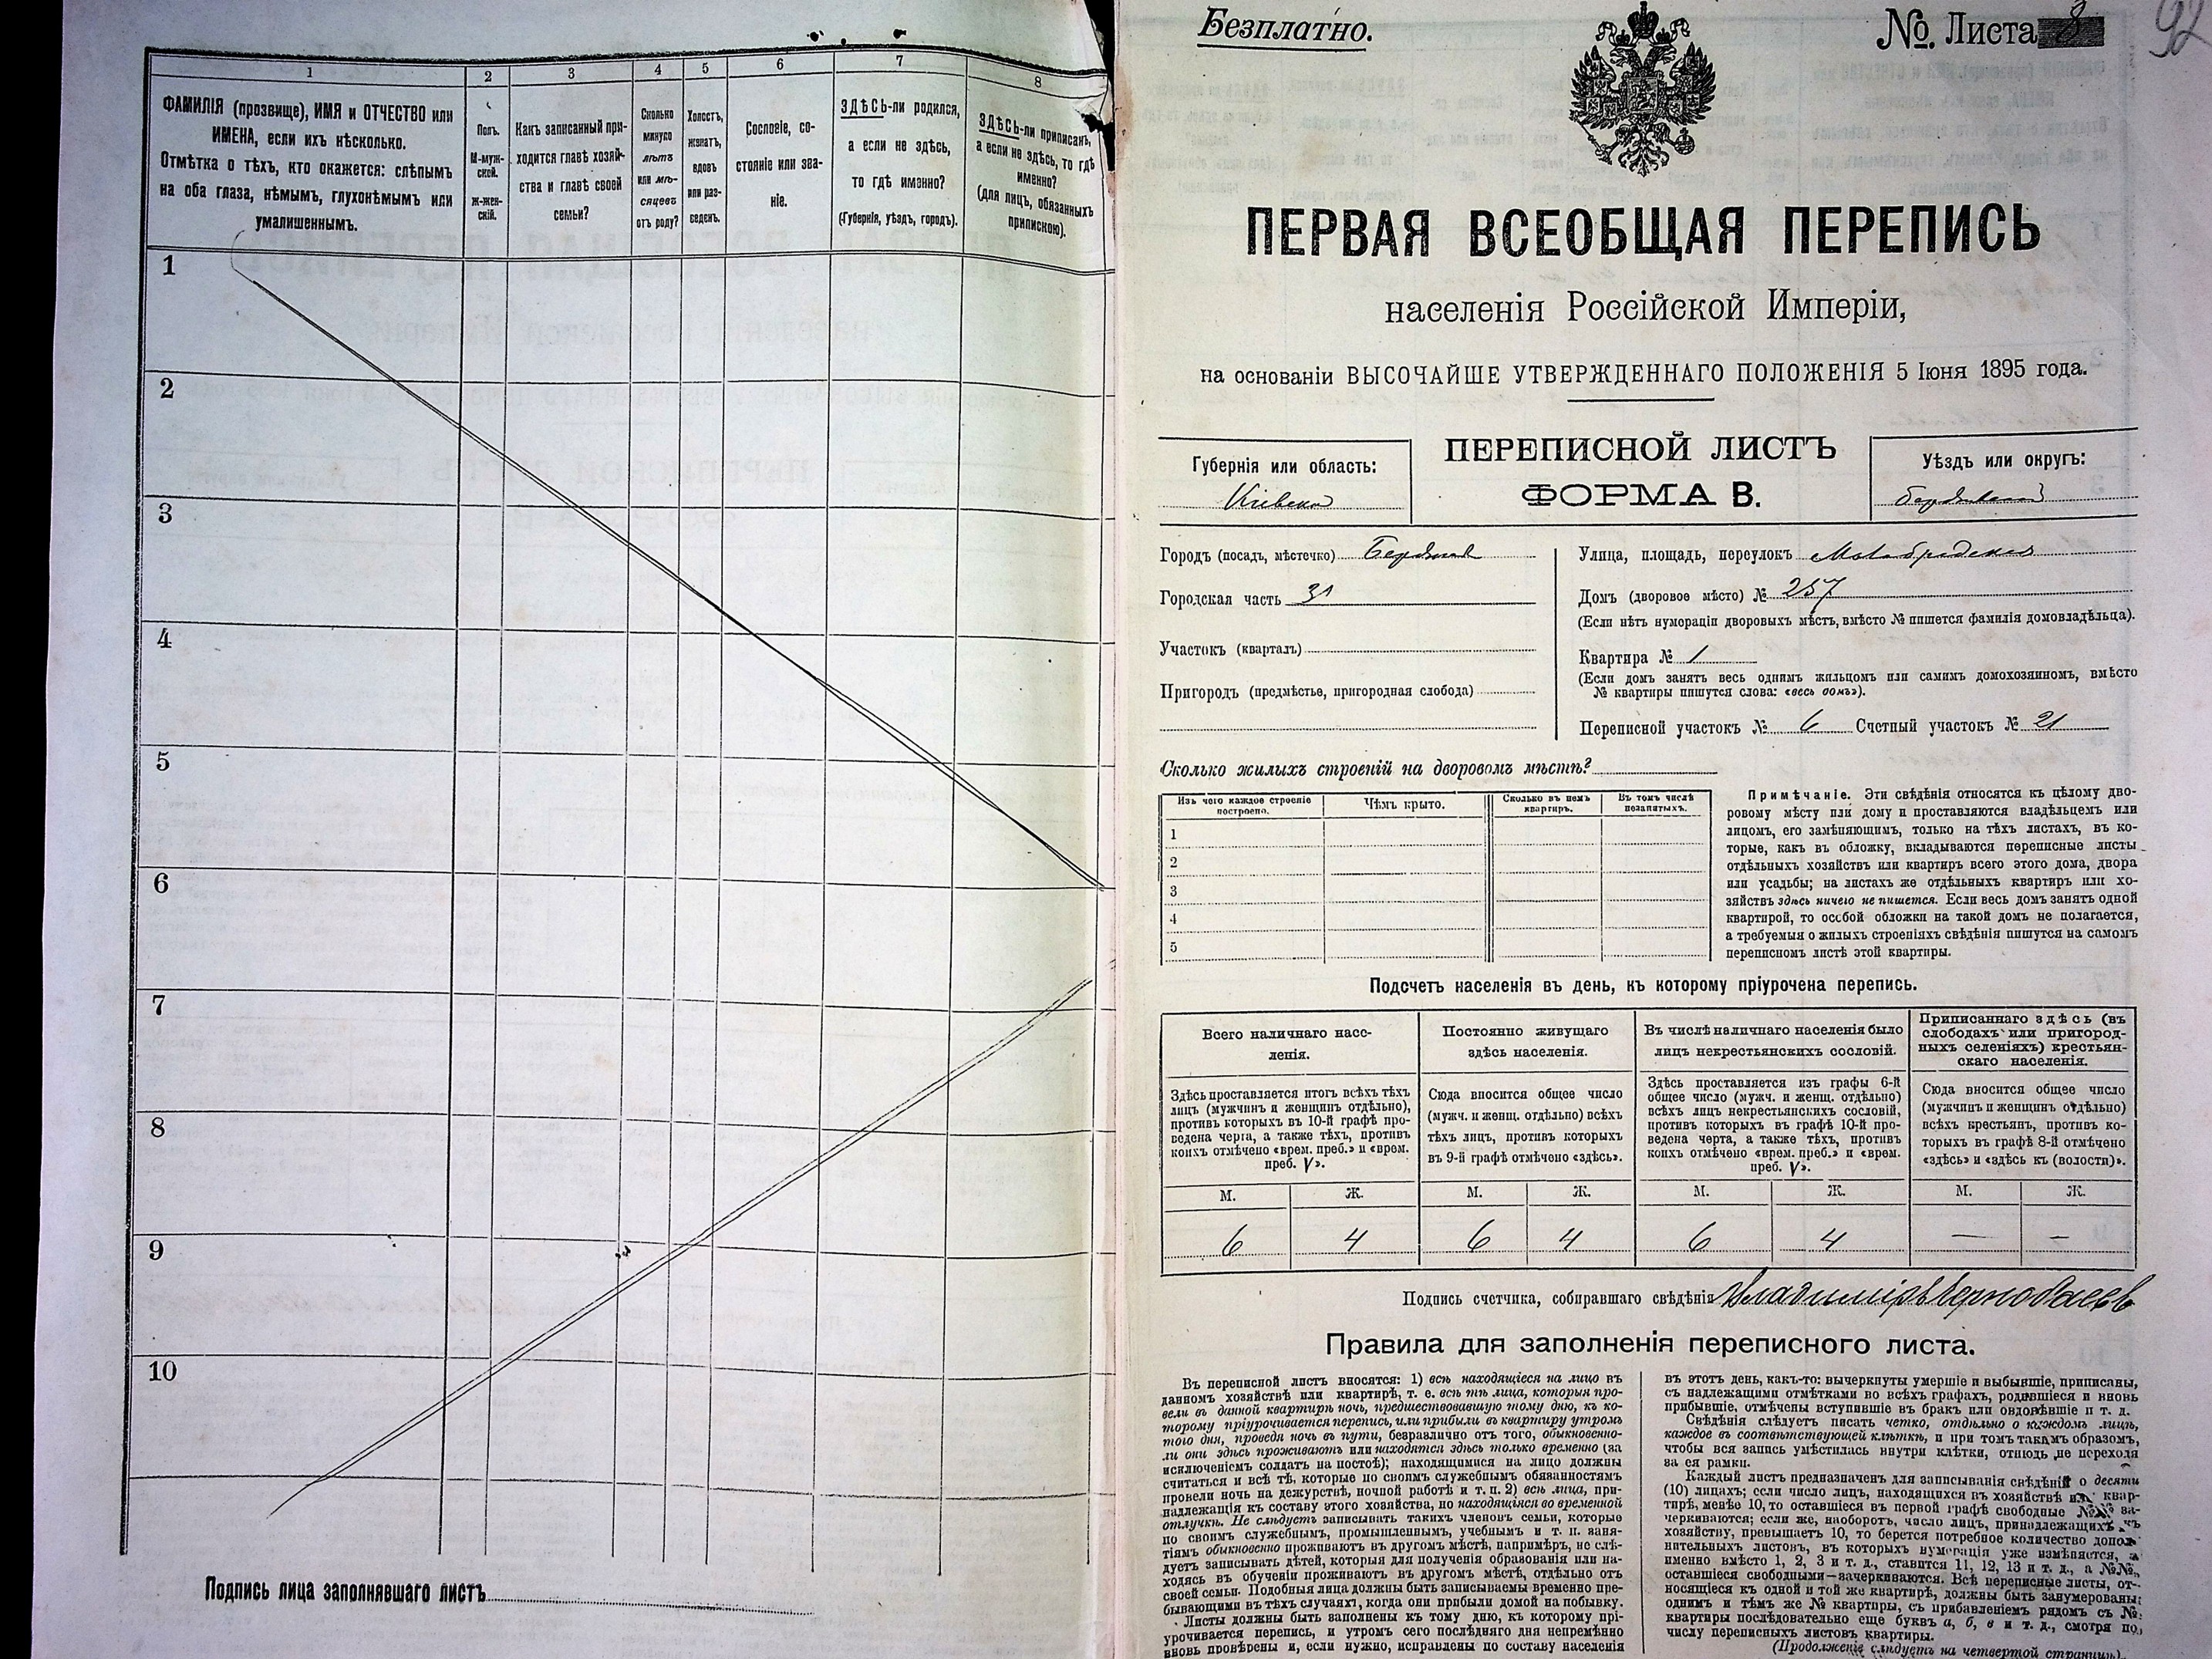 1 2 3 4 5 6 7 8
ФАМИЛІЯ (прозвище), ИМЯ и ОТЧЕСТВО или
ИМЕНА, если ихъ нѣсколько.
Отмѣтка о тѣхъ, кто окажется: слѣпымъ
на оба глаза, нѣмымъ, глухонѣмымъ или
умалишеннымъ.
Полъ.
М-муж-
ской.
ж-жен-
скій.
Какъ записанный при-
ходится главѣ хозяй-
ства и главѣ своей
семьи?
Сколько
минуло
лѣтъ
или мѣ-
сяцевъ
отъ роду?
Холостъ,
женатъ,
вдовъ
или раз-
веденъ.
Сословіе, со-
стояніе или зва-
ніе.
ЗДѢСЬ-ли родился,
а если не здѣсь,
то гдѣ именно?
(Губернія, уѣздъ, городъ).
ЗДѢСЬ-ли приписанъ,
а если не здѣсь, то гдѣ
именно?
(для лицъ, обязанныхъ
припискою).
1
2
3
4
5
6
7
8
9
10
Подпись лица заполнявшаго листъ
Безплатно.
№. Листа 8
92
ПЕРВАЯ ВСЕОБЩАЯ ПЕРЕПИСЬ
населенія Россійской Имперіи,
на основаніи ВЫСОЧАЙШЕ УТВЕРЖДЕННАГО ПОЛОЖЕНІЯ 5 Іюня 1895 года.
Губернія или область:
Кіевская
ПЕРЕПИСНОЙ ЛИСТЪ
ФОРМА В.
Уѣздъ или округъ:
Бердичевскій
Городъ (посадъ, мѣстечко) Бердичевъ
Городская часть 31
Участокъ (кварталъ)
Пригородъ (предмѣстье, пригородная слобода)
Улица, площадь, переулокъ
Домъ (дворовое мѣсто) № 257
(Если нѣтъ нумораціи дворовыхъ мѣстъ, вмѣсто № пишется фамилія домовладѣльца).
Квартира № 1
(Если домъ занятъ весь однимъ жильцомъ или самимъ домохозяиномъ, вмѣсто
№ квартиры пишутся слова: «весь домъ»).
Переписной участокъ № 6 Счетный участокъ № 21
Сколько жилыхъ строеній на дворовомъ мѣстѣ?
Изъ чего каждое строеніе
построено.
Чѣмъ крыто.
Сколько въ немъ
квартиръ.
Въ томъ числѣ
незанятыхъ.
1
2
3
4
5
Примѣчаніе. Эти свѣдѣнія относятся къ цѣлому дво-
ровому мѣсту или дому и проставляются владѣльцемъ или
лицомъ, его замѣняющимъ, только на тѣхъ листахъ, въ ко-
торые, какъ въ обложку, вкладываются переписные листы
отдѣльныхъ хозяйствъ или квартиръ всего этого дома, двора
или усадьбы; на листахъ же отдѣльныхъ квартиръ или хо-
зяйствъ здѣсь ничего не пишется. Если весь домъ занятъ одной
квартирой, то особой обложки на такой домъ не полагается,
а требуемыя о жилыхъ строеніяхъ свѣдѣнія пишутся на самомъ
переписномъ листѣ этой квартиры.
Подсчетъ населенія въ день, къ которому пріурочена перепись.
Всего наличнаго насе-
ленія.
Постоянно живущаго
здѣсь населенія.
Въ числѣ наличнаго населенія было
лицъ некрестьянскихъ сословій.
Приписаннаго здѣсь (въ
слободахъ или пригород-
ныхъ селеніяхъ) крестьян-
скаго населенія.
Здѣсь проставляется итогъ всѣхъ тѣхъ
лицъ (мужчинъ и женщинъ отдѣльно),
противъ которыхъ въ 10-й графѣ про-
ведена черта, а также тѣхъ, противъ
коихъ отмѣчено «врем. преб.» и «врем.
преб. V».
Сюда вносится общее число
(мужч. и женщ. отдѣльно) всѣхъ
тѣхъ лицъ, противъ которыхъ
въ 9-й графѣ отмѣчено «здѣсь».
Здѣсь проставляется изъ графы 6-й
общее число (мужч. и женщ. отдѣльно)
всѣхъ лицъ некрестьянскихъ сословій,
противъ которыхъ въ графѣ 10-й про-
ведена черта, а также тѣхъ, противъ
коихъ отмѣчено «врем. преб.» и «врем.
преб. V».
Сюда вносится общее число
(мужчинъ и женщинъ отдѣльно)
всѣхъ крестьянъ, противъ ко-
торыхъ въ графѣ 8-й отмѣчено
«здѣсь» и «здѣсь къ (волости)».
М. Ж. М. Ж. М. Ж. М. Ж.
6 4 6 4 6 4 — —
Подпись счетчика, собиравшаго свѣдѣнія Владиміръ
Правила для заполненія переписного листа.
Въ переписной листъ вносятся: 1) всѣ находящіеся на лицо въ
данномъ хозяйствѣ или квартирѣ, т. е. всѣ тѣ лица, которыя про-
вели въ данной квартирѣ ночь, предшествовавшую тому дню, къ ко-
торому пріурочивается перепись, или прибыли въ квартиру утромъ
того дня, проведя ночь въ пути, безразлично отъ того, обыкновенно-
ли они здѣсь проживаютъ или находятся здѣсь только временно (за
исключеніемъ солдатъ на постоѣ); находящимися на лицо должны
считаться и всѣ тѣ, которые по своимъ служебнымъ обязанностямъ
провели ночь на дежурствѣ, ночной работѣ и т. п. 2) всѣ лица, при-
надлежащія къ составу этого хозяйства, но находящіяся во временной
отлучкѣ. Не слѣдуетъ записывать такихъ членовъ семьи, которые
по своимъ служебнымъ, промышленнымъ, учебнымъ и т. п. заня-
тіямъ обыкновенно проживаютъ въ другомъ мѣстѣ, напримѣръ, не слѣ-
дуетъ записывать дѣтей, которыя для полученія образованія или на-
ходясь въ обученіи проживаютъ въ другомъ мѣстѣ, отдѣльно отъ
своей семьи. Подобныя лица должны быть записываемы временно пре-
бывающими въ тѣхъ случаяхъ, когда они прибыли домой на побывку.
Листы должны быть заполнены къ тому дню, къ которому прі-
урочивается перепись, и утромъ сего послѣдняго дня непремѣнно
вновь провѣрены и, если нужно, исправлены по составу населенія
въ этотъ день, какъ-то: вычеркнуты умершіе и выбывшіе, приписаны,
съ надлежащими отмѣтками во всѣхъ графахъ, родившіеся и вновь
прибывшіе, отмѣчены вступившіе въ бракъ или овдовѣвшіе и т. д.
Свѣдѣнія слѣдуетъ писать четко, отдѣльно о каждомъ лицѣ,
каждое въ соотвѣтствующей клѣткѣ, и при томъ такимъ образомъ,
чтобы вся запись умѣстилась внутри клѣтки, отнюдь не переходя
за ея рамки.
Каждый листъ предназначенъ для записыванія свѣдѣній о десяти
(10) лицахъ; если число лицъ, находящихся въ хозяйствѣ или квар-
тирѣ, менѣе 10, то оставшіеся въ первой графѣ свободные №№ за-
черкиваются; если же, наоборотъ, число лицъ, принадлежащихъ къ
хозяйству, превышаетъ 10, то берется потребное количество допол-
нительныхъ листовъ, въ которыхъ нумерація уже измѣняется, а
именно вмѣсто 1, 2, 3 и т. д., ставится 11, 12, 13 и т. д., а №№,
оставшіеся свободными—зачеркиваются. Всѣ переписные листы, от-
носящіеся къ одной и той же квартирѣ, должны быть занумерованы;
однимъ и тѣмъ же № квартиры, съ прибавленіемъ рядомъ съ №
квартиры послѣдовательно еще буквъ а, б, в и т. д., смотря по
числу переписныхъ листовъ квартиры.
(Продолженіе слѣдуетъ на четвертой страницѣ).